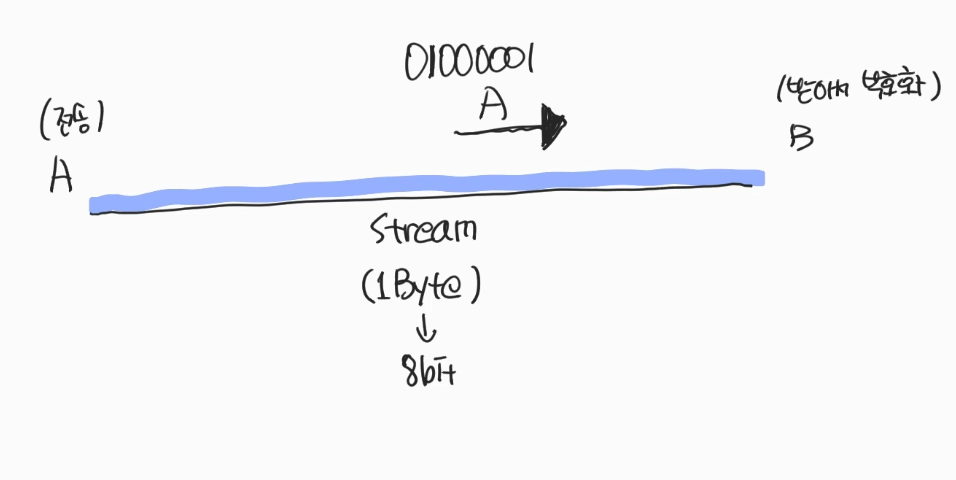 01000001
A
(전송)
A
(받아서 복호화)
B
Stream
(1Byte)
↓
8bit